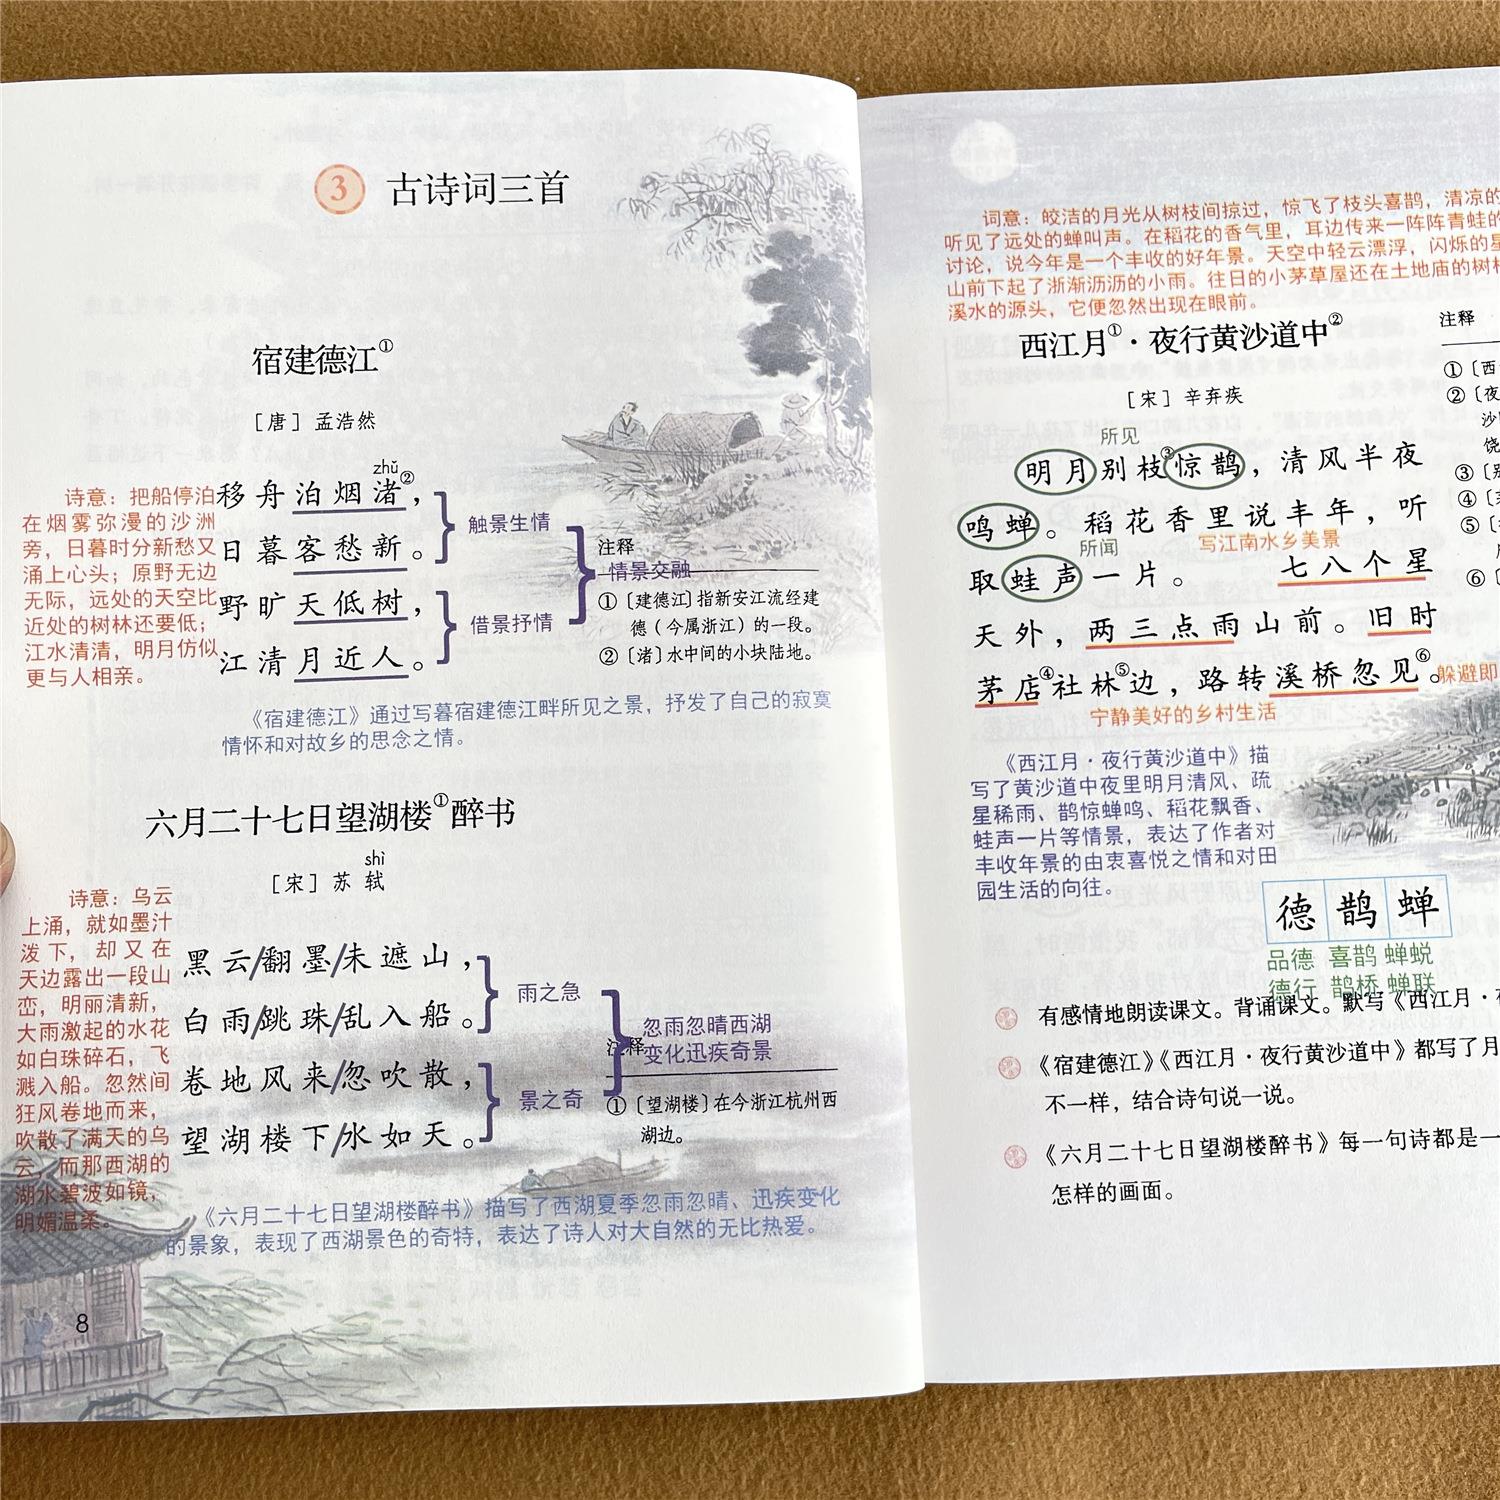 3 古诗词三首
宿建德江①
［唐］孟浩然
zhǔ
移舟泊烟渚②，
日暮客愁新。
野旷天低树，
江清月近人。
诗意：把船停泊
在烟雾弥漫的沙洲
旁，日暮时分新愁又
涌上心头；原野无边
无际，远处的天空比
近处的树林还要低；
江水清清，明月仿似
更与人相亲。
触景生情
借景抒情
情景交融
注释
①〔建德江〕指新安江流经建
德（今属浙江）的一段。
②〔渚〕水中间的小块陆地。
《宿建德江》通过写暮宿建德江畔所见之景，抒发了自己的寂寞
情怀和对故乡的思念之情。
六月二十七日望湖楼①醉书
shì
［宋］苏轼
黑云/翻墨/未遮山，
白雨/跳珠/乱入船。
卷地风来/忽吹散，
望湖楼下/水如天。
诗意：乌云
上涌，就如墨汁
泼下，却又在
天边露出一段山
峦，明丽清新，
大雨激起的水花
如白珠碎石，飞
溅入船。忽然间
狂风卷地而来，
吹散了满天的乌
云，而那西湖的
湖水碧波如镜，
明媚温柔。
雨之急
景之奇
忽雨忽晴西湖
变化迅疾奇景
注释
①〔望湖楼〕在今浙江杭州西
湖边。
《六月二十七日望湖楼醉书》描写了西湖夏季忽雨忽晴、迅疾变化
的景象，表现了西湖景色的奇特，表达了诗人对大自然的无比热爱。
8
词意：皎洁的月光从树枝间掠过，惊飞了枝头喜鹊，清凉的
听见了远处的蝉叫声。在稻花的香气里，耳边传来一阵阵青蛙的
讨论，说今年是一个丰收的好年景。天空中轻云漂浮，闪烁的星
山前下起了淅淅沥沥的小雨。往日的小茅草屋还在土地庙的树林
溪水的源头，它便忽然出现在眼前。
西江月①·夜行黄沙道中②
［宋］辛弃疾
所见
明月别枝③惊鹊，清风半夜
鸣蝉。稻花香里说丰年，听
所闻
写江南水乡美景
取蛙声一片。七八个星
天外，两三点雨山前。旧时
茅店④社林⑤边，路转溪桥忽见⑥。
躲避即
宁静美好的乡村生活
注释
①〔西
②〔夜
沙
饶
③〔别
④
⑤
⑥〔
《西江月·夜行黄沙道中》描
写了黄沙道中夜里明月清风、疏
星稀雨、鹊惊蝉鸣、稻花飘香、
蛙声一片等情景，表达了作者对
丰收年景的由衷喜悦之情和对田
园生活的向往。
德鹊蝉
品德 喜鹊 蝉蜕
德行 鹊桥 蝉联
有感情地朗读课文。背诵课文。默写《西江月·夜
《宿建德江》《西江月·夜行黄沙道中》都写了月
不一样，结合诗句说一说。
《六月二十七日望湖楼醉书》每一句诗都是一
怎样的画面。